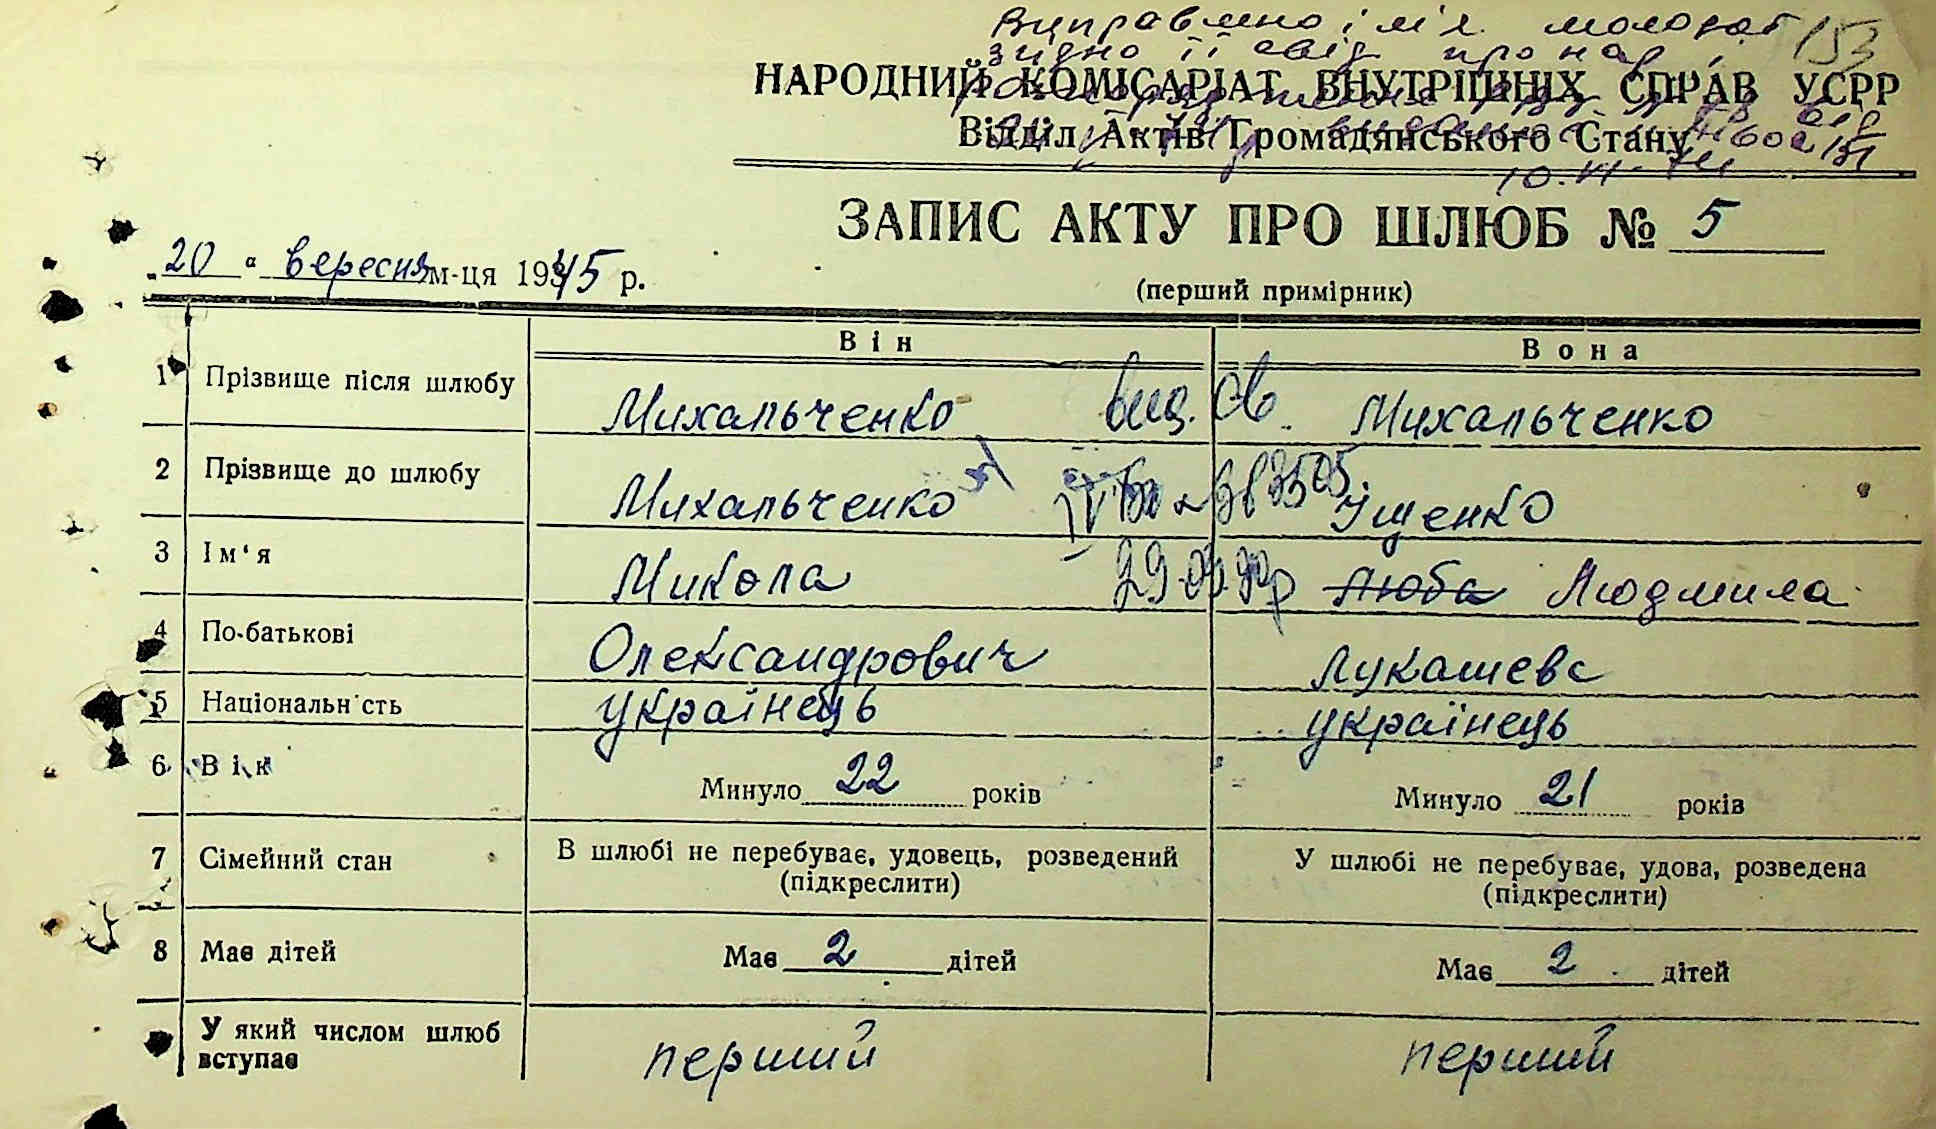 Виправлено ім'я молодої 153
згідно її свід. про нар.
НАРОДНИЙ КОМІСАРІАТ ВНУТРІШНІХ СПРАВ УСРР
Відділ Актів Громадянського Стану
10.VI.
ЗАПИС АКТУ ПРО ШЛЮБ № 5
„20“ вересня м-ця 1945 р.
(перший примірник)
Він Вона
1 Прізвище після шлюбу Михальченко вид. Михальченко
2 Прізвище до шлюбу Михальченко Ущенко
3 Ім'я Микола Люба Людмила
4 По-батькові Олександрович Лукашевс
5 Національність українець українець
6 Вік Минуло 22 років Минуло 21 років
7 Сімейний стан В шлюбі не перебуває, удовець, розведений У шлюбі не перебуває, удова, розведена
(підкреслити) (підкреслити)
8 Має дітей Має 2 дітей Має 2 дітей
У який числом шлюб
вступає перший перший